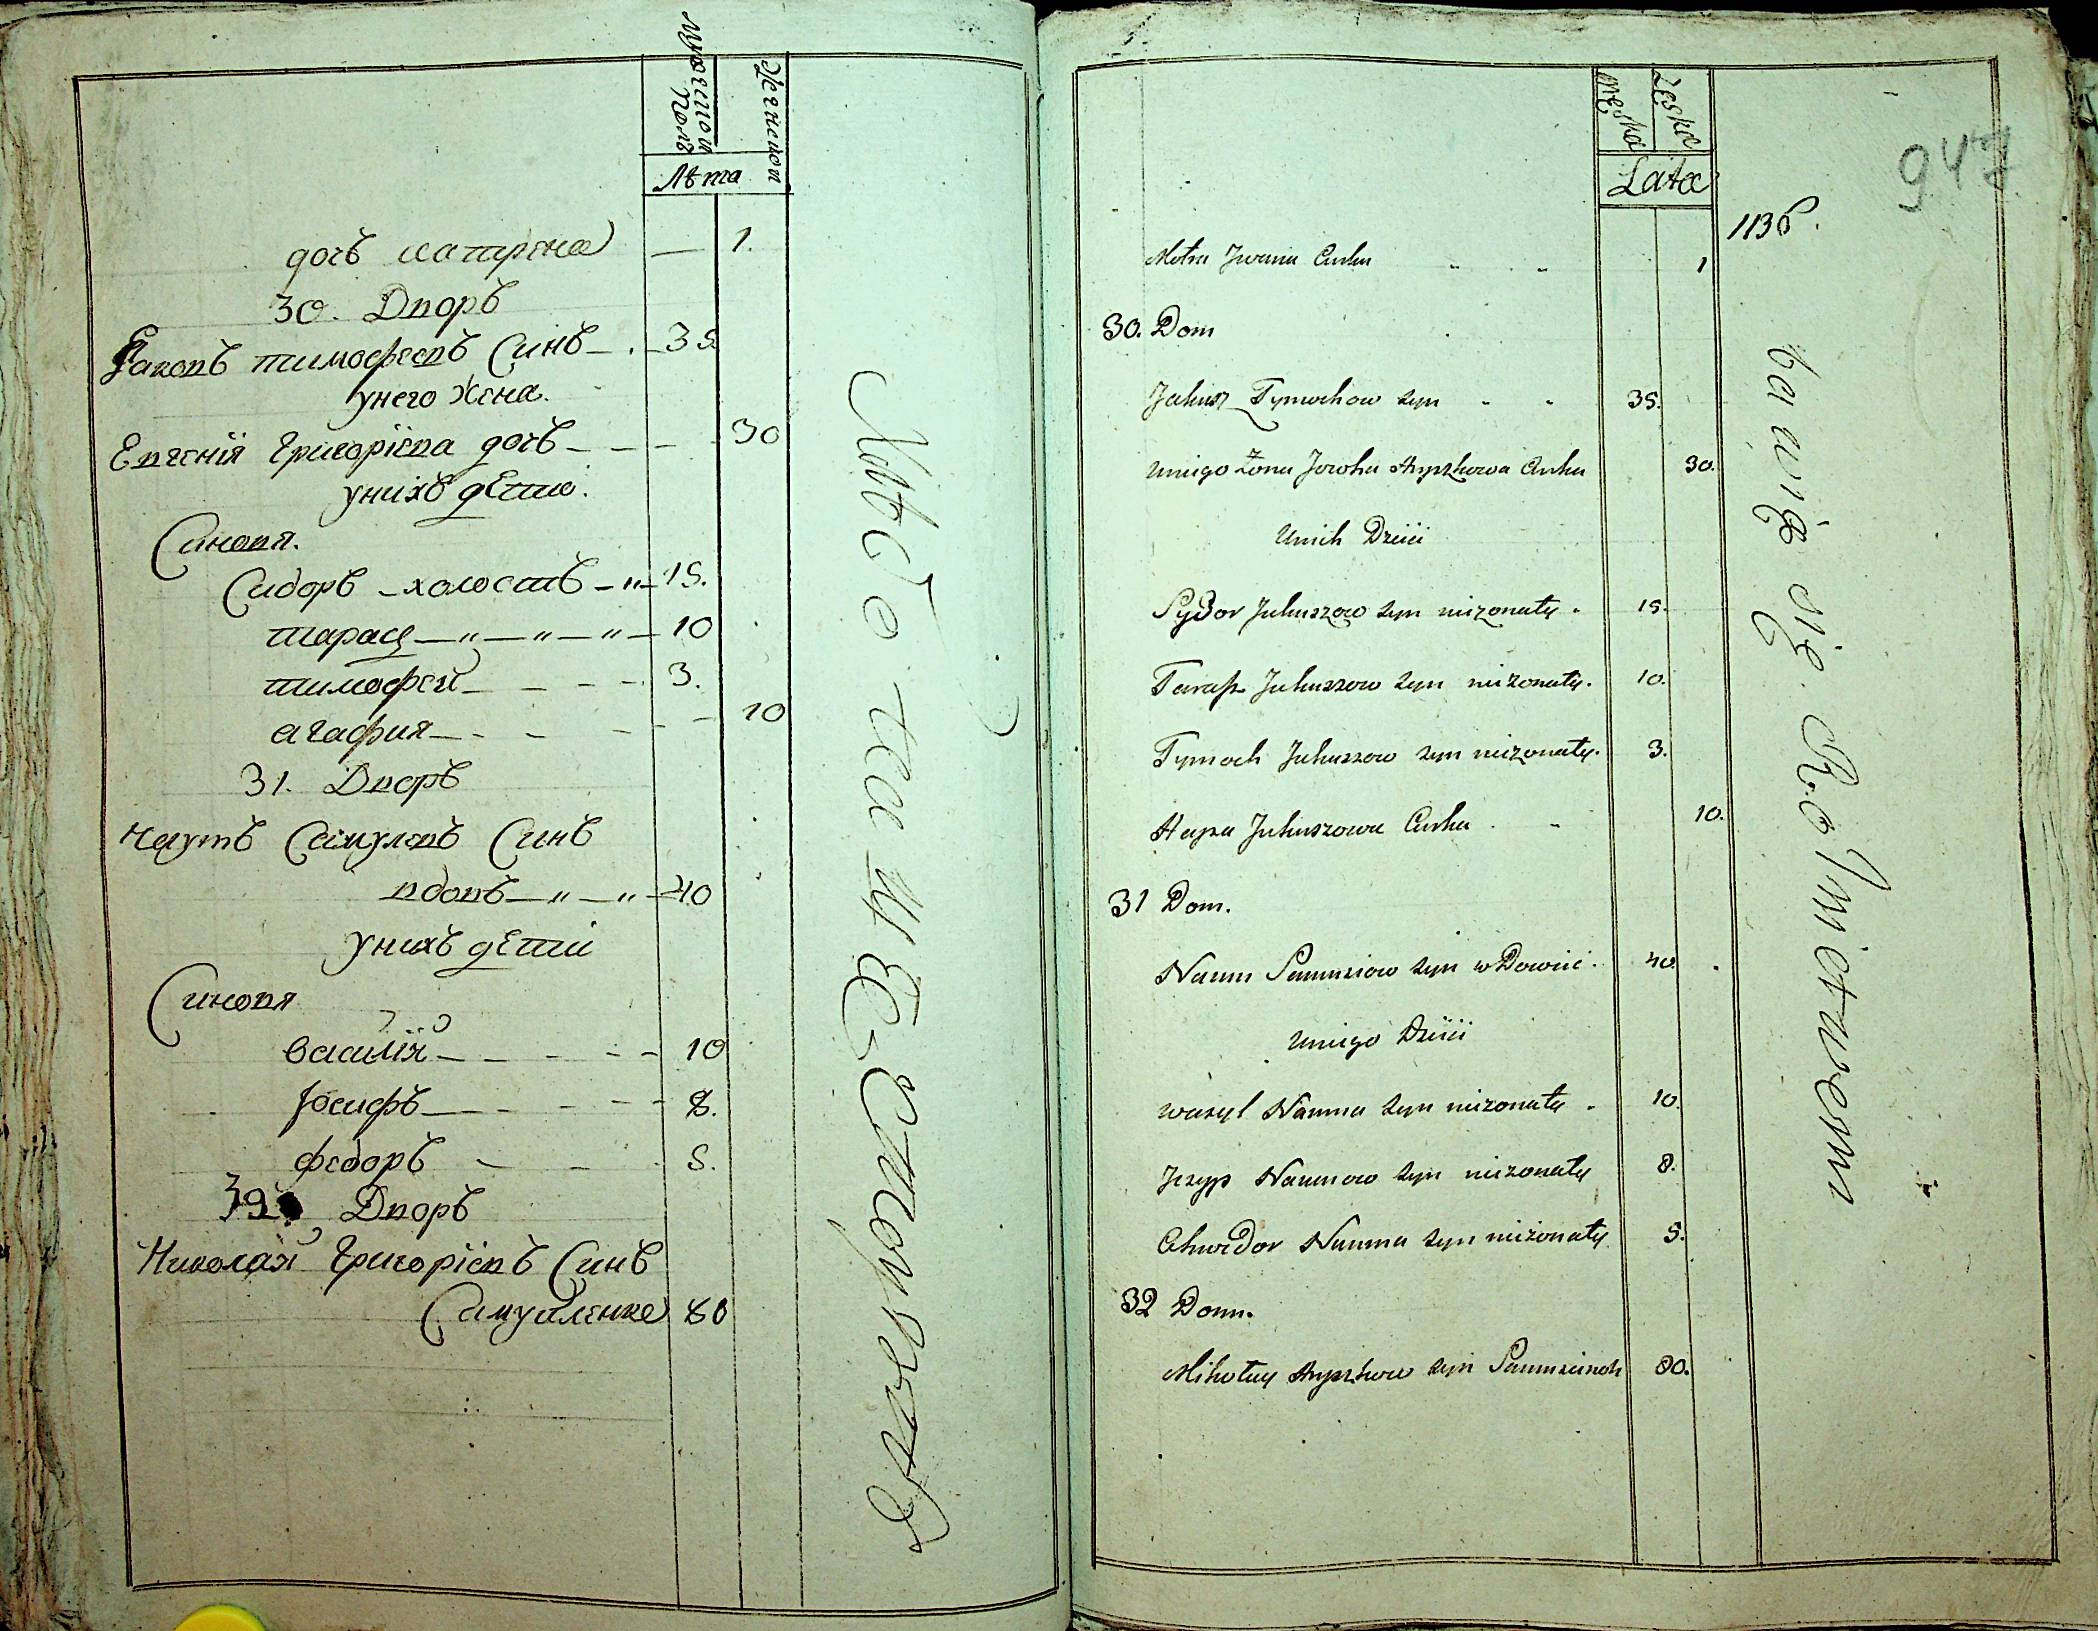 мужеской полъ
женской
Лѣта
дочъ матрена — 1.
30. Дворъ
Яковъ тимофеевъ Синъ — 35
унего Жена.
Евгенія Григоріева дочъ — — — 30
унихъ дети.
Синовя.
Сидоръ — холостъ — " — 15.
тарасъ — " — " — " — 10
тимофей — — — — 3.
агафия — — — — 10
31. Дворъ
наумъ Самулевъ Синъ
вдовъ — " — " — 40
Унихъ дети
Синовя
василій — — — — 10
Іосифъ — — — — 8.
федоръ — — — 5.
32 Дворъ
Николай Григоріевъ Синъ
Самуйленко 80
męska
Zeska
Lata
947
1136.
Motra Jwana Curka 1
30. Dom
Jakusz Tymochow syn 35.
uniego Zona Jewka Hryszkowa Curka 30.
Unich Dzieci
Sydor Jakuszow syn niezonaty. 15.
Taras Jakuszow syn niezonaty. 10.
Tymoch Jakuszow syn niezonaty. 3.
Hapa Jakuszowa Curka 10.
31 Dom.
Naum Samusiow syn wDowiec. 40
Uniego Dzieci
wasyl Nauma syn niezonaty. 10.
Jezyp Naumow syn niezonaty 8.
Chwedor Nauma syn niezonaty 5.
32 Dom.
Mikołay Hryszkow syn 80.